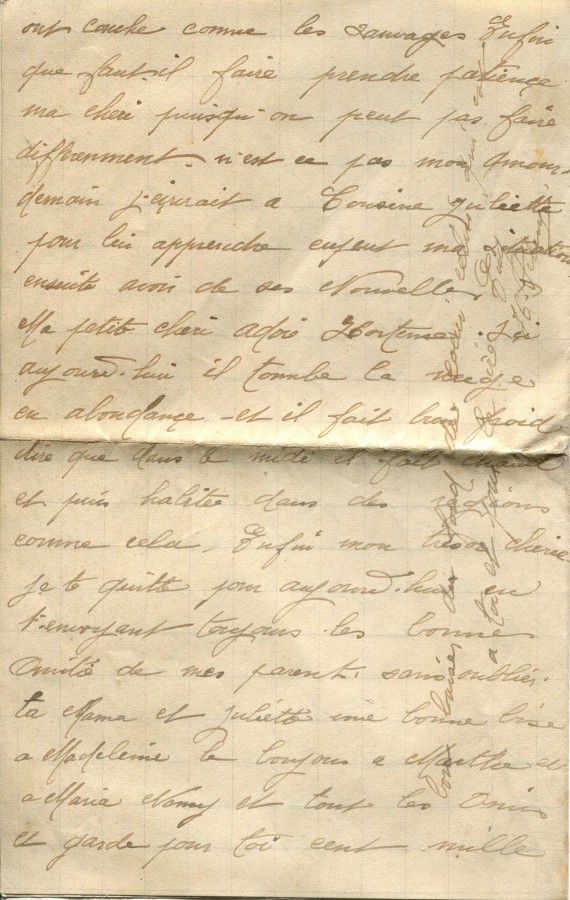 ont couche comme les sauvages Enfin
que faut-il faire prendre patience
ma cheri puisqu'on peut pas faire
differenment n'est ce pas mon amour
demain j'ecrirait a Cousine Juliette
pour lui apprendre ma situation
ensuite avoir de ses Nouvelles
Ma petit cheri adoré Hortense. Ici
aujourd-hui il tombe la neige
en abondance - et il fait bien froid
dire que dans le midi il fait chaud
et puis habitée dans des regions
comme cela. Enfin mon tresor cherie
je te quitte pour aujourd-hui en
t'envoyant toujours les bonnes
Amitié de mes parent. sans oublier.
ta Mama et Juliette une bonne bise
a Madeleine le bonjour a Marthe et
a Maria Nancy et tout les Amis
et garde pour toi cent mille
bons baiser du fond du
a toi et pour